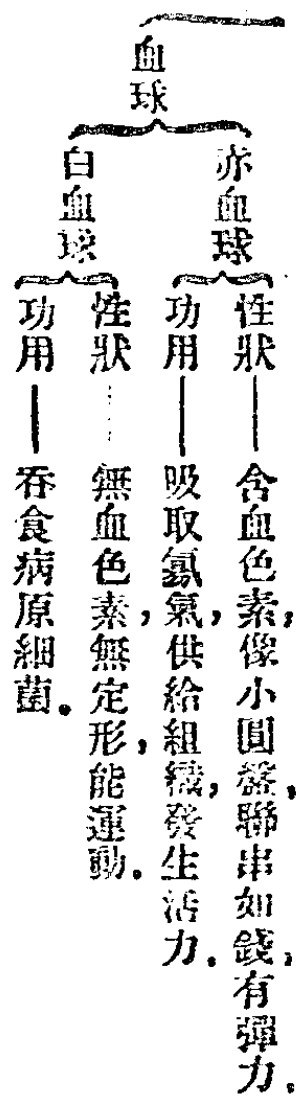 血球
赤血球
性狀——含血色素,像小圓盤,聯串如錢,有彈力。
功用——吸取氧氣,供給組織,發生活力。
白血球
性狀……無血色素,無定形,能運動。
功用——吞食病原細菌。